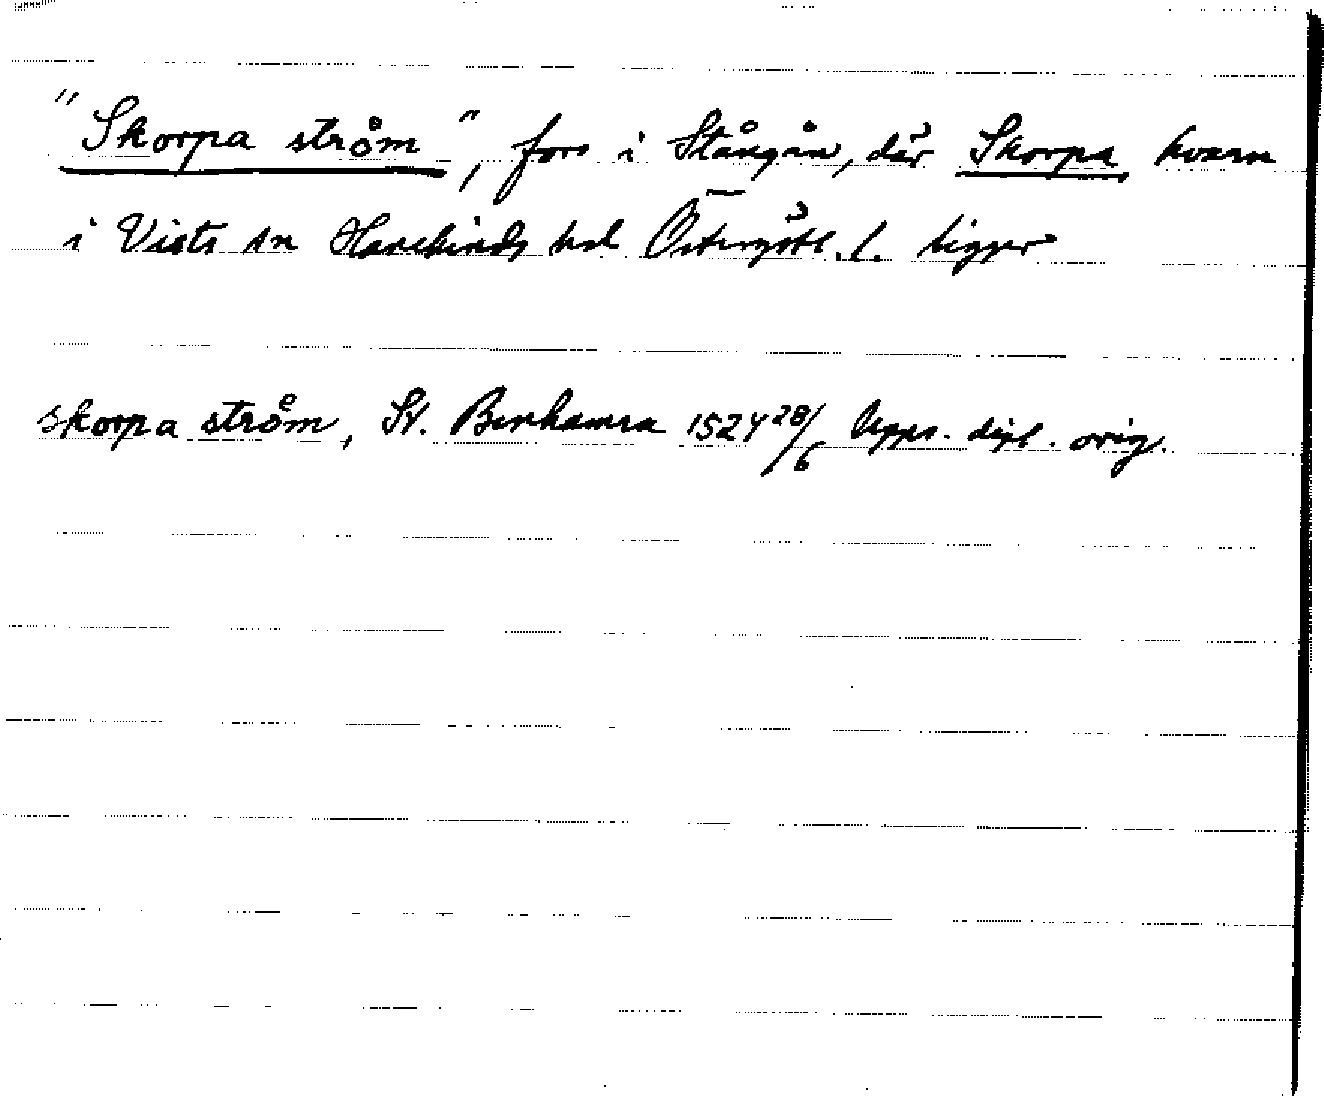 "Skorpa ström", fors i Stångån, där Skorpa kvarn
i Vists sn Hanekinds hd Östergötl. l. ligger
skorpa ström, St. Benhamra 1524 28/6 Upps. dipl. orig.